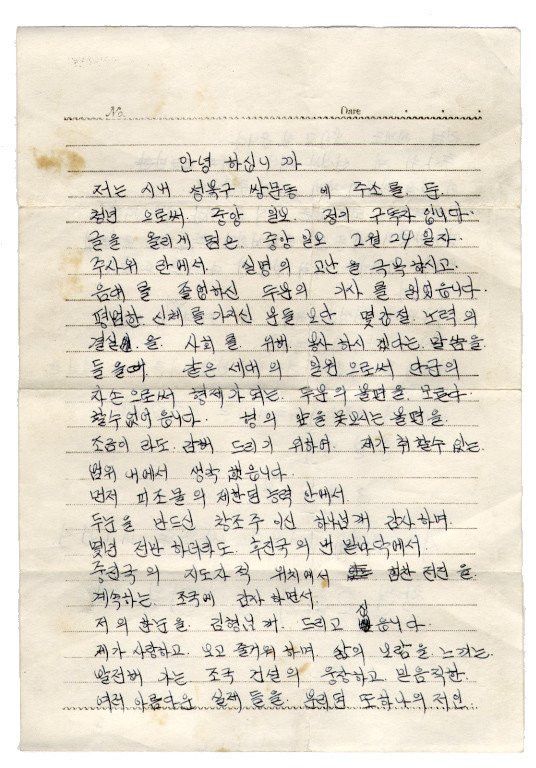 No.
Date
안녕 하십니까
저는 시내 성북구 쌍문동 에 주소를 둔
청년 으로써. 중앙 일보 정기 구독자 입니다.
글을 올리게 된은 중앙일보 2월 24일자.
주사위 란에서. 실명의 고난을 극복하시고.
음대를 졸업하신 두분의 기사를 읽었읍니다.
평범한 신체를 가지신 분들 보단 몇갑절 노력의
결실 을 사회를 위해 봉사하시겠다는 말씀을
들을때, 같은 세대의 일원으로써 단군의
자손으로써 형제가 되는. 두분의 불편을. 모른다
할수없어읍니다. 형의 앞을못보시는 불편을
조금이라도. 감해 드리기 위하여 제가 취할수 있는.
범위 내에서 생각 했읍니다.
먼저 피조물의 제한된 능력 안에서
두분을 만드신 창조주 이신 하나님께 감사하며.
몇년 전만 하더라도 후진국의 맨 밑바닥에서.
중진국의 지도자적 위치에서 힘찬 전진을.
계속하는. 조국에 감사 하면서.
저의 한눈을. 김형님께. 드리고 싶읍니다.
제가 사랑하고. 보고 즐거워하며 삶의 보람을 느끼는.
발전해 가는 조국 건설의 웅장하고 믿음직한.
여러 아름다운 실체들을. 우리민 또하나의 적인